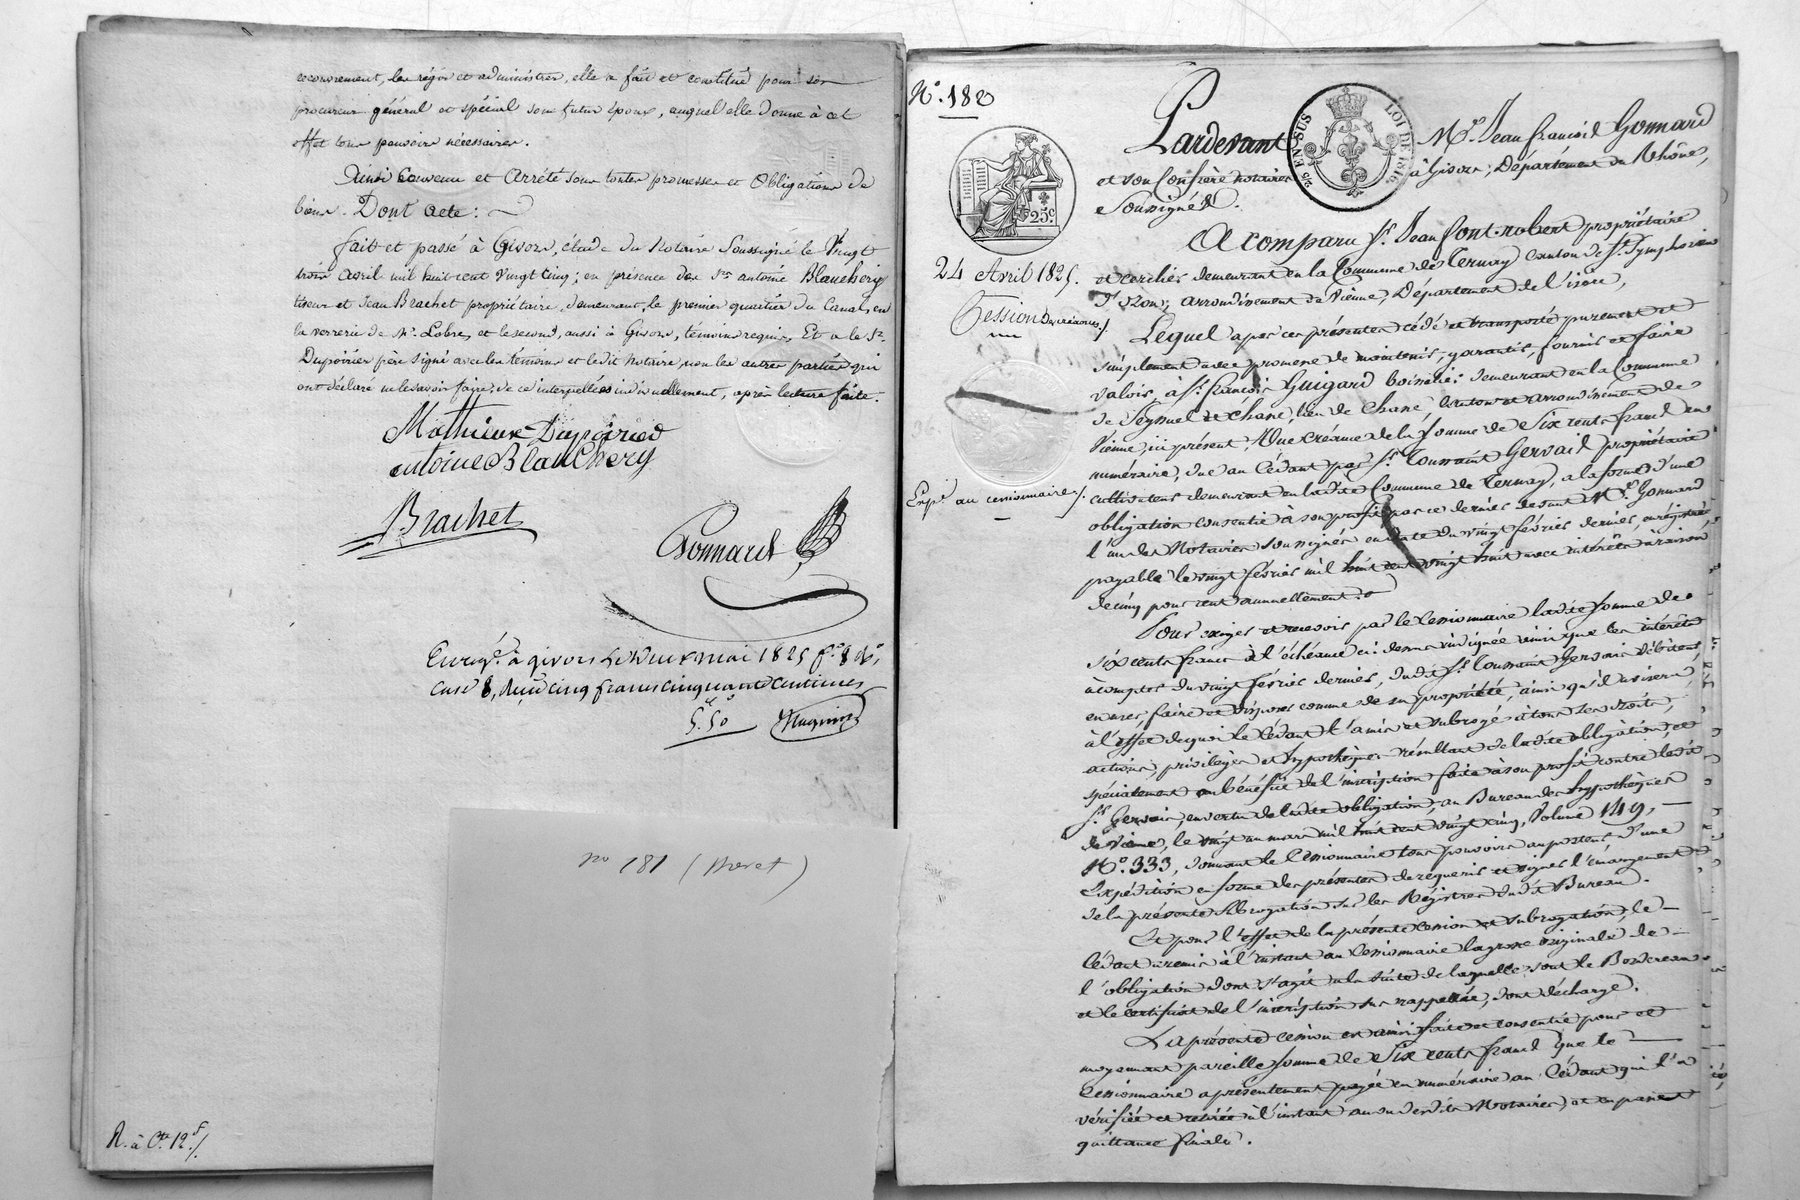 recouvrement, les régir et administrer, elle a fait et constitué pour son
procureur général et spécial son futur époux, auquel elle donne à cet
effet tous pouvoirs nécessaires.
Ainsi Convenu et Arrêté sous toutes promesses et Obligations de
biens. Dont Acte :
fait et passé à Givors, étude du Notaire Soussigné le Vingt
trois Avril mil huit cent vingt cinq; en présence des Srs antoine Blanchery
tiseur et Jean Brachet propriétaire, demeurant, le premier quartier du Canal, en
la verrerie de Mr. Lobre, et le second, aussi à Givors, témoins requis, Et a le Sr.
Dupoirier père signé avec les témoins et le dit Notaire, non les autres parties qui
ont déclaré ne le savoir faire, de ce interpellées individuellement, après lecture faite.
Mathieux Dupoirier
antoine Blanchery
Brachet
Gonnard
Enregé. à givors Le deux mai 1825 fo. 8 Vo,
Case 8, Reçu cinq francs cinquante centimes
5.f 50
R. à Cte 12 f/.
no 181 (Brevet)
No. 182
25c.
EN SUS
LOI DE 1816
Pardevant Me. Jean françois Gonnard
et son Confrère notaires à Givors, Département du Rhône,
Soussignés.
24 Avril 1825.
Cession de créances./.
Expé au cessionnaire/.
A comparu Sr. Jean Font-robert propriétaire
et cerclier demeurant en la Commune de Ternay canton de St. Symphorien
d'Ozon, arrondissement de Vienne, Département de l'isère,
Lequel a par ces présentes cédé et transporté purement et
simplement avec promesse de maintenir, garantir, fournir et faire
valoir, à Sr. françois Guigard boisselier demeurant en la Commune
de Seyssuel et chane, lieu de Chane, Canton et arrondissement de
Vienne, ici présent, Une créance de la Somme de Six cents francs en
numéraire, due au Cédant par Sr. Toussaint Gervais propriétaire
cultivateur demeurant en la dite Commune de Ternay, a la forme d'une
obligation consentie à son profit par ce dernier devant Me. Gonnard
l'un des Notaires Soussignés en date du vingt février dernier, enregistrée,
payable le vingt février mil huit cent vingt huit avec intérêts à raison
de cinq pour cent annuellement.
Pour exiger et recevoir par le Cessionnaire ladite Somme de
six cents francs à l'échéance ci-dessus indiquée ainsi que les intérêts
à compter du vingt février dernier, dudit Sr. Toussaint Gervais débiteur,
en user, faire et disposer comme de sa propriété, ainsi qu'il avisera;
à l'effet de quoi le Cédant l'a mis et subrogé à tous ses droits,
actions, privilèges et hypothèques résultant de la dite obligation, et
spécialement au bénéfice de l'inscription faite à son profit contre ledit
Sr. Gervais, en vertu de la dite obligation, au Bureau des hypothèques
de Vienne, le vingt un mars mil huit cent vingt cinq, Volume 149,
No. 333, donnant le Cessionnaire tous pouvoirs au porteur d'une
Expédition en forme des présentes de requérir et signer l'émargement
de la présente Subrogation sur les Régistres dudit Bureau.
Et pour l'effet de la présente cession et subrogation, le
Cédant a remis à l'instant au Cessionnaire la grosse originale de
l'obligation dont s'agit à la suite de laquelle sont le Bordereau
et le certificat de l'inscription sus rappellée, dont décharge.
La présente cession est ainsi faite et consentie pour et
moyennant pareille somme de Six cents francs que le
Cessionnaire a présentement payée en numéraire au Cédant qui l'a
vérifiée et retirée à l'instant au vu desdits Notaires, et en passe
quittance finale.